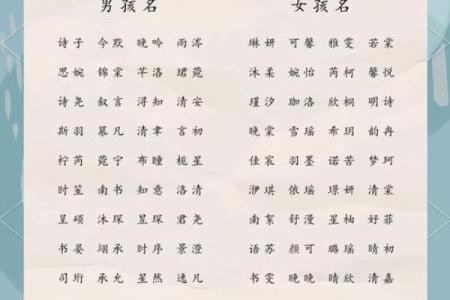 男孩名 女孩名
诗子 今默 晚吟 雨涔 琳妍 可馨 雅雯 若棠
思婉 锦棠 芊洛 珺菀 沐柔 婉怡 芮柯 馨悦
诗尧 叙言 浔知 清安 瑾汐 珈洛 欣桐 明诗
斯羽 慕凡 清聿 言初 晚棠 雪瑶 希玥 韵冉
柠芮 菀宁 布瞳 栀星 佳宸 羽墨 诺苦 梦珂
时笙 南书 知意 洛清 洢琪 依瑶 璟妍 清棠
呈硕 沐琛 星琛 君尧 南絮 舒漫 星柚 好菲
书晏 翊承 时序 景澄 语苏 颜可 璐瑶 晴初
司珩 承允 星然 逸凡 书雯 晚晚 晴欣 清嘉